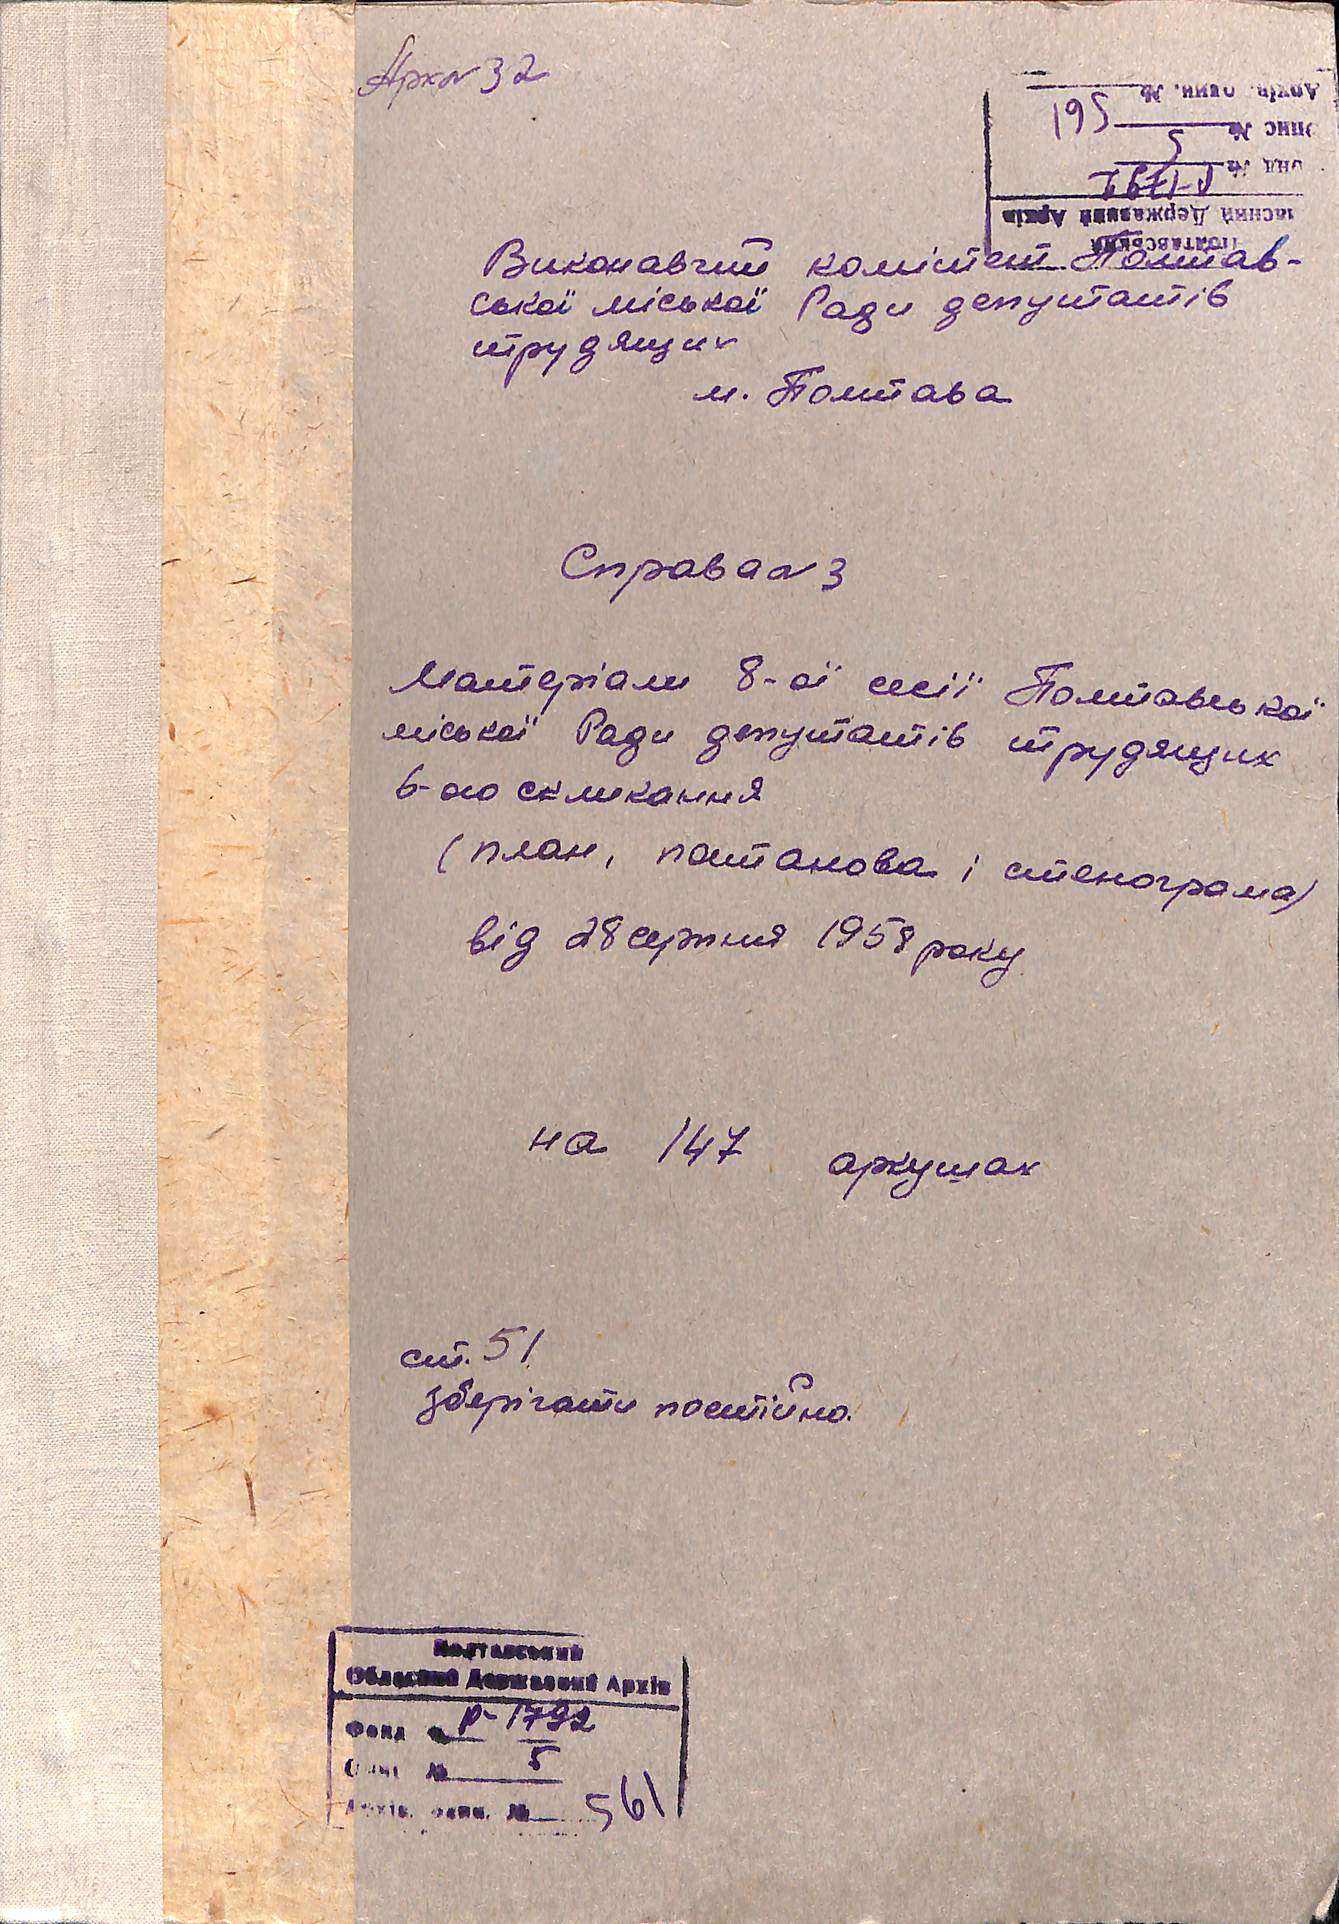 Арх№ 32
Полтавський
Обласний Державний Архів
Фонд № Р-1792
Опис № 5
Архів. один. № 561
Виконавчий комітет Полтав-
ської міської Ради депутатів
трудящих
м. Полтава
Справа № 3
Матеріали 8-ої сесії Полтавської
міської Ради депутатів трудящих
6-ого скликання
(план, постанова і стенограма)
від 28 серпня 1958 року
на 147 аркушах
ст. 51
Зберігати постійно.
Полтавський
Обласний Державний Архів
Фонд № Р-1792
Опис № 5
Архів. один. № 561